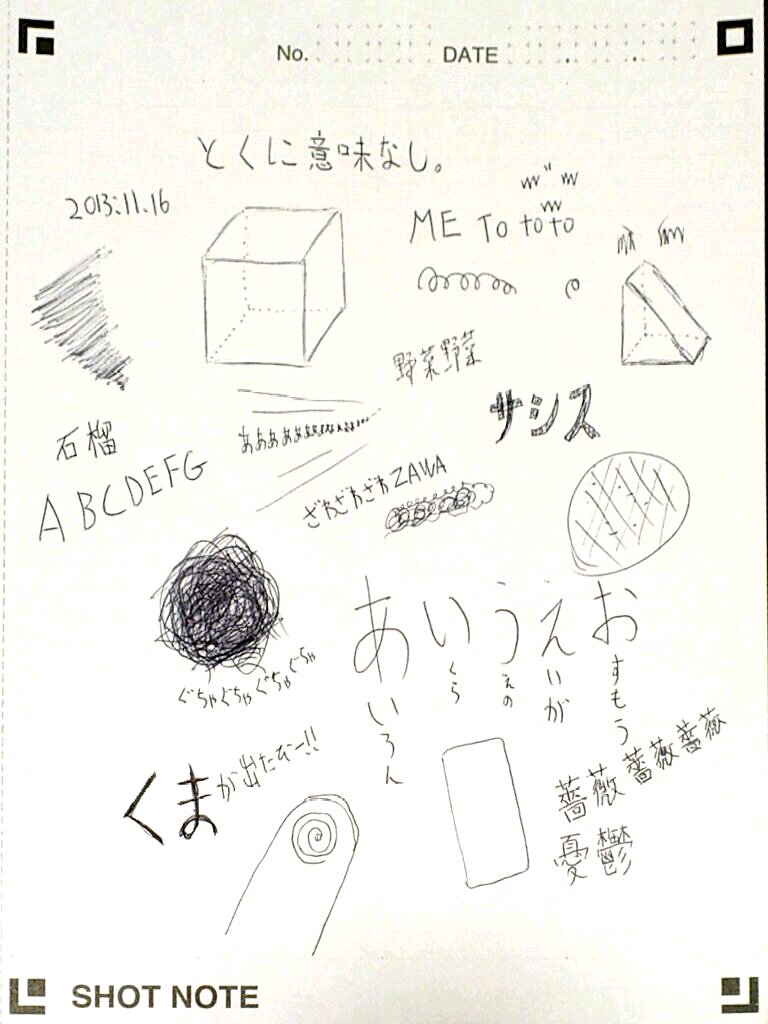 No. DATE
とくに意味なし。
2013.11.16
ME TO toto
野菜野菜
サシス
石榴
あああああああああ
ABCDEFG
ざわざわざわZAWA
あいうえお
あいろん
いくら
うえの
えいが
おすもう
ぐちゃぐちゃぐちゃぐちゃ
くまが出たぞー!!
薔薇薔薇薔薇
憂鬱
SHOT NOTE